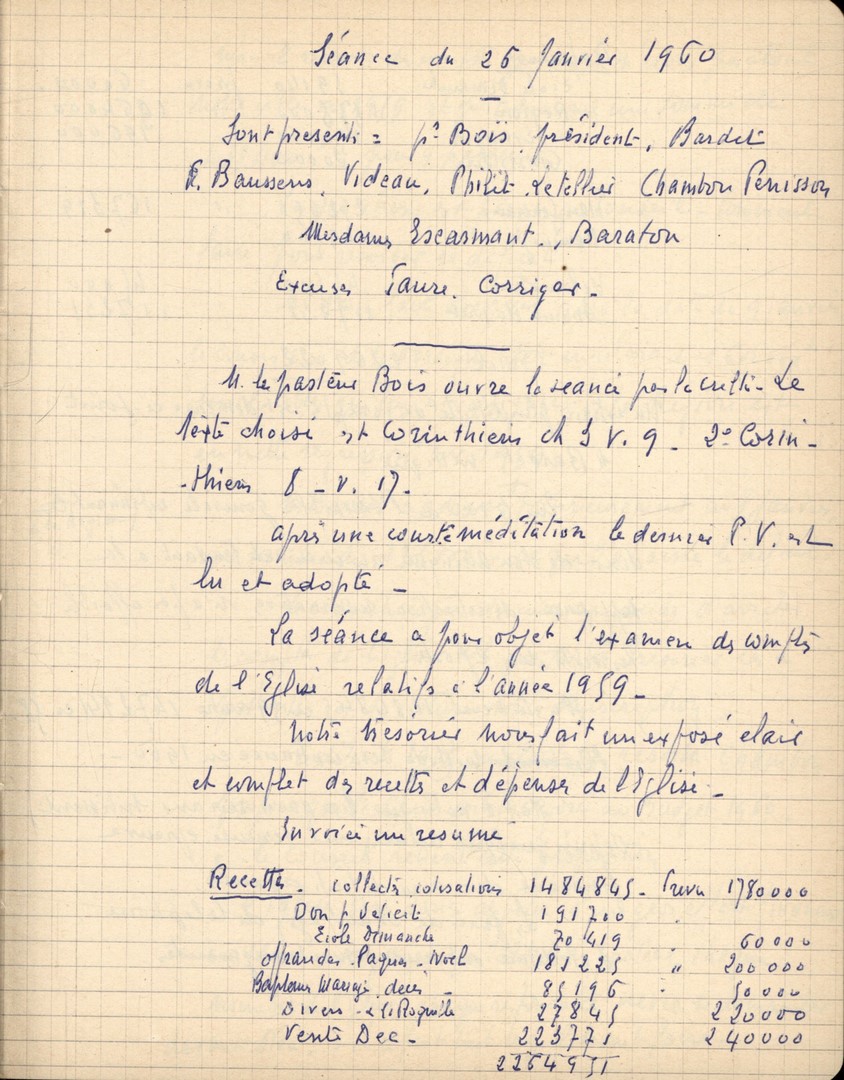 Séance du 26 Janvier 1960
Sont presents = pr Bois, président, Bardet
E. Baussens, Videau, Philit. Letellier Chambon Penisson
Mesdames Escarmant., Baraton
Excuses Faure. Corriger -
M. le pasteur Bois ouvre la seance par le culte - Le
texte choisi est Corinthiens ch 5 V. 9 - 2e Corin -
- thiens 8 - v. 17 -
après une courte méditation le dernier P. V. est
lu et adopté -
La séance a pour objet l'examen des comptes
de l'Eglise relatifs à l'année 1959 -
Notre trésorier nous fait un exposé clair
et complet des recettes et dépenses de l'Eglise -
En voici un resumé
Recettes - collectes cotisations 1484845 - Prevu 1780000
Don pr deficit 191700 "
Ecole Dimanche 70419 " 60000
offrandes Paques - Noel 181225 " 200 000
Baptemes Mariages deces - 85196 " 50000
Divers - 27845 220000
Vente Dec - 223771 240000
2264951